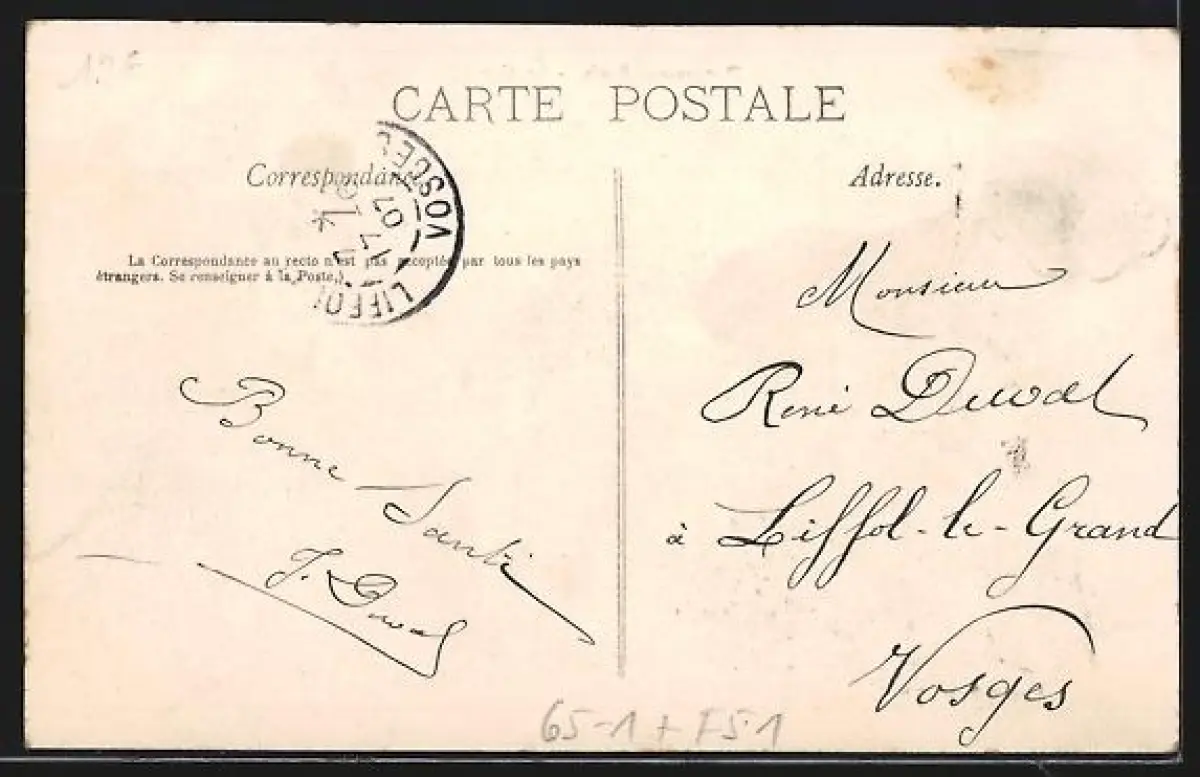 CARTE POSTALE
Correspondance
La Correspondance au recto n'est pas acceptée par tous les pays
étrangers. Se renseigner à la Poste.)
VOSGES
07
LIFFOL
Bonne Santé
J. Duval
Adresse.
Monsieur
René Duval
à Liffol-le-Grand
Vosges
65-1 + FS1